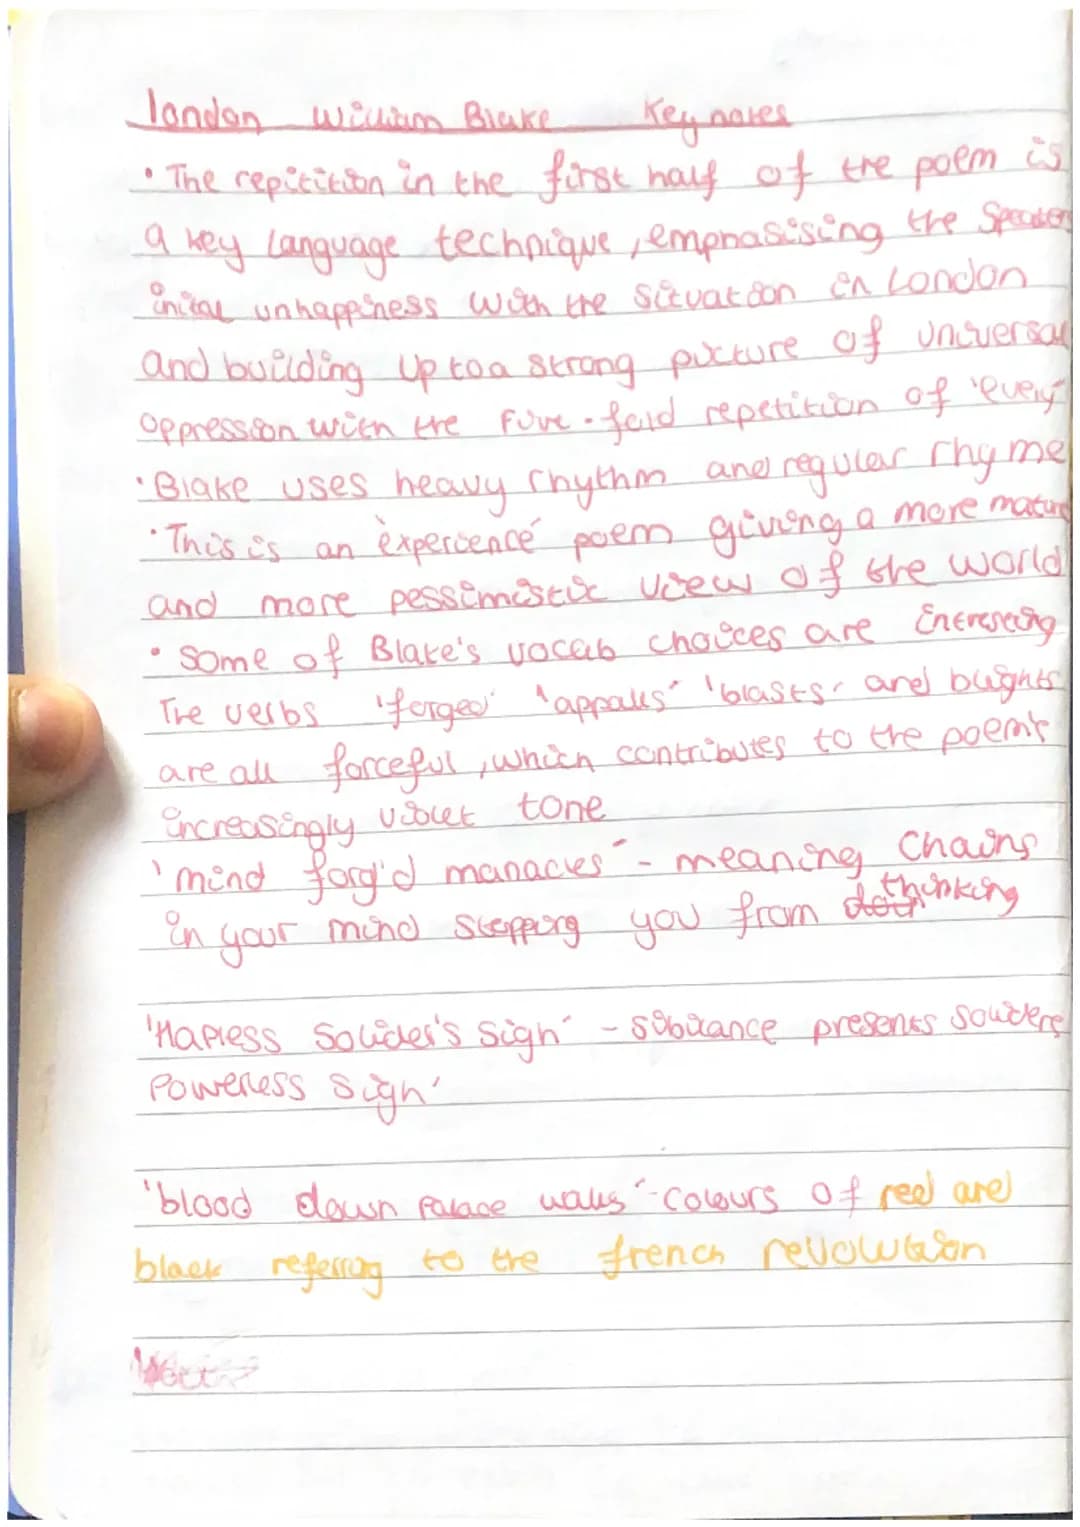 london William Blake Key notes
• The repitition in the first half of the poem is
a key language technique, emphasising the Speakers
inital unhappiness with the situation in London
and building up to a strong picture of universal
oppression with the five-fold repetition of 'every'
• Blake uses heavy rhythm and regular rhyme
• This is an 'experience' poem giving a more mature
and more pessimistic view of the world
• some of Blake's vocab choices are interesting
The verbs 'forged' 'appalls' 'blasts' and blights
are all forceful, which contributes to the poem's
increasingly violet tone
'mind forg'd manacles' - meaning chains
in your mind stopping you from thinking
'Hapless Solider's sigh' - sibilance presents soliders
Powerless sigh'
'blood down Palace walls' - colours of red and
black referring to the french revolution